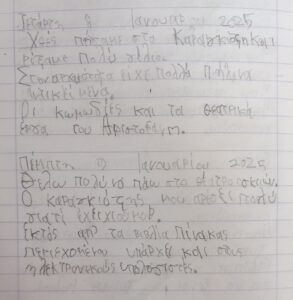 Τετάρτη 8 Ιανουαρίου 2025
Χθές πήγαμε στο Καραγκιόζη και
πολύ ωραία.
είχε πολλά
Οι κωμωδίες και τα θεατρικά
έργα του Αριστοφάνη.
Πέμπτη 9 Ιανουαρίου 2025
Θέλω πολύ να πάω στο θέατρο σκιών.
Ο καραγκιόζης μου αρέσει πολύ
γιατί έχει χιούμορ.
Εκτός από τα βιβλία Πίνακας
περιεχομένου υπάρχει και στους
ηλεκτρονικούς υπολογιστές.